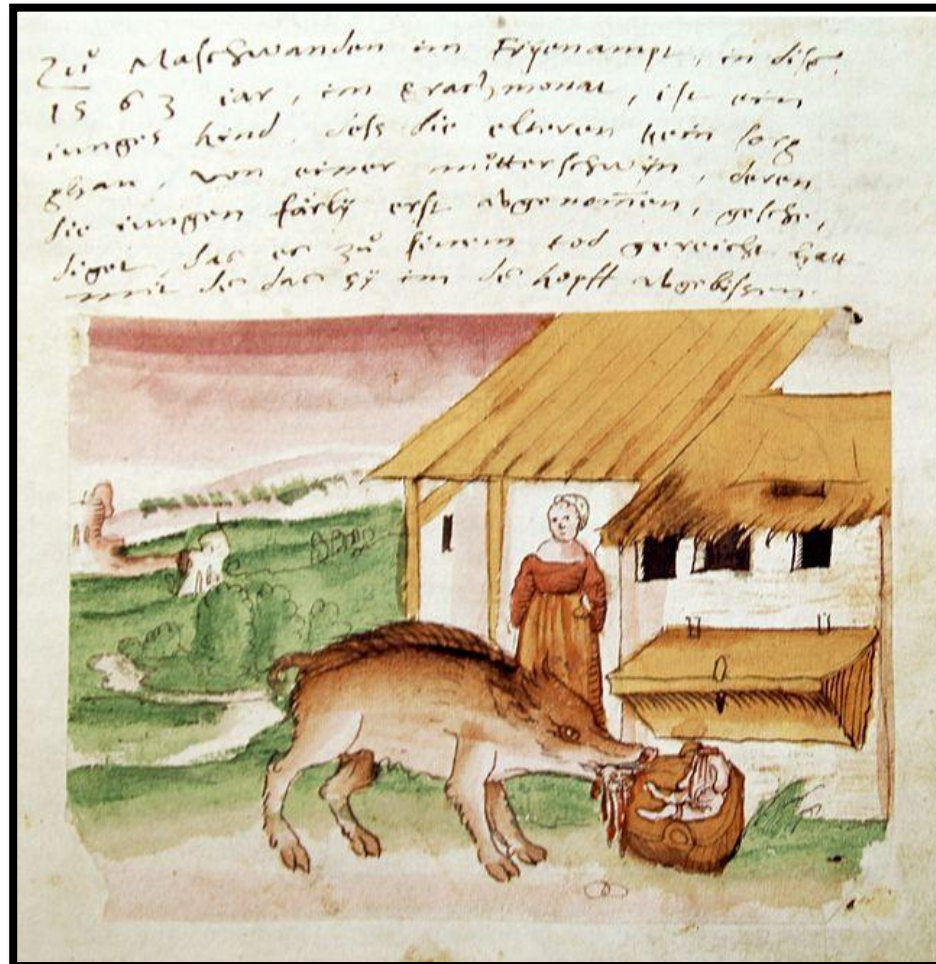 Zů Maschwanden im Fryenampt, in disz
1563 iar, im Brachmonat, ist ein
iunges kind, dess die elteren kein sorg
ghan, von einer můtterschwyn, deren
die iungen färly erst abgenom̄en, gesche,
diget, das es zů sinem tod gereicht hatt
mit de das sy im de kopff abgebissen.